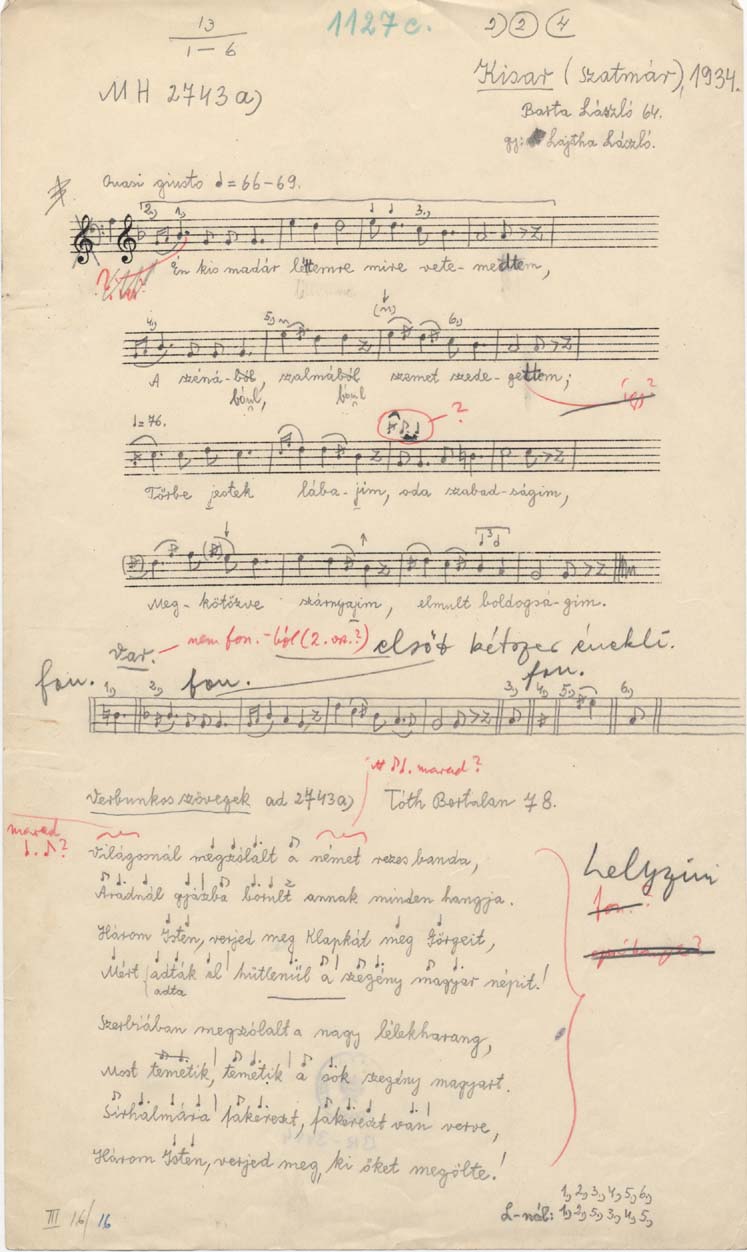 13
1-6
1127c.
1) 2) 4
MH 2743a)
Kisar (Szatmár), 1934.
Barta László 64.
gy: Lajtha László.
Quasi giusto = 66-69.
2, 1, 3,
Én kis madár léttemre mire vete-medtem,
4, 5, 6,
A széná-ból, szalmából szemet szede-gettem;
bóul, bóul
így?
?
= 76.
Tőrbe jestek lába-jim, oda szabad-ságim,
3
Meg-kötözve szárnyajim, elmult boldogsá-gim.
Var. nem fon.-ból (2. on.?) elsőt kétszer énekli.
fon. fon. fon.
1, 2, 3, 4, 5, 6,
marad?
Verbunkos szövegek ad 2743a) Tóth Bertalan 78.
marad
?
Világosnál megszólalt a német rezes banda,
Aradnál gyászba borult annak minden hangja.
Három Isten, verjed meg Klapkát meg Görgeit,
Mért adták el hűtlenül a szegény magyar népit!
adta
helyzíni
fon.?
Szerbiában megszólalt a nagy lélekharang,
Most temetik, temetik a sok szegény magyart.
Sirhalmára fakereszt, fakereszt van verve,
Három Isten, verjed meg, ki őket megölte!
1, 2, 3, 4, 5, 6,
L-nál: 1, 2, 5, 3, 4, 5,
III 16/16